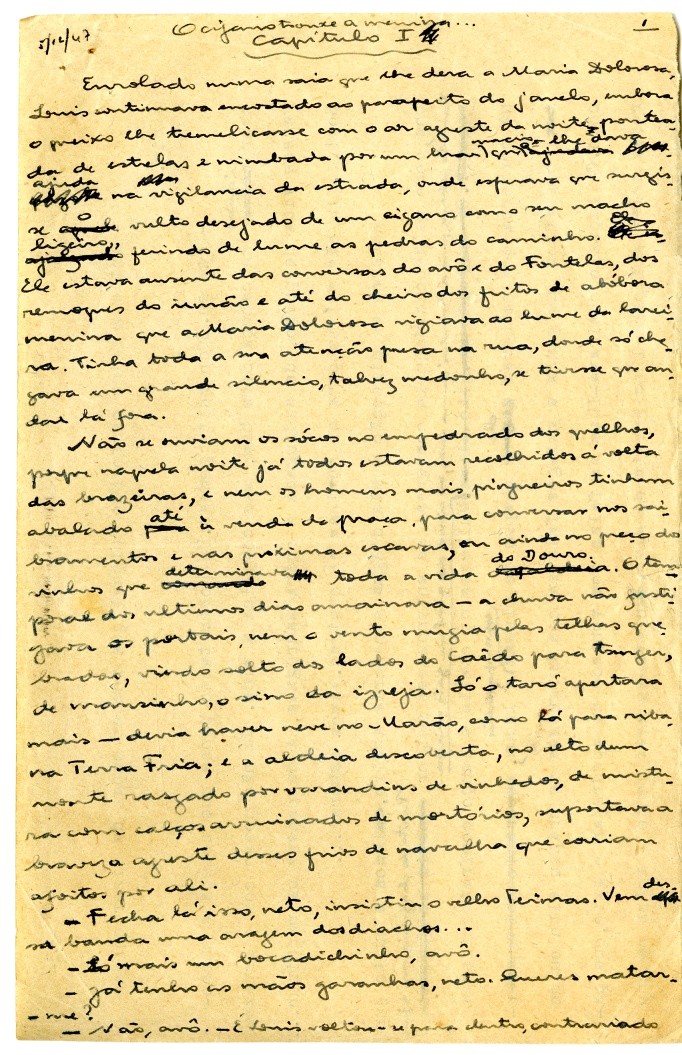 O cigano trouxe a menina... 1
5/12/47
Capítulo I
Enrolado numa saia que lhe dera a Maria Dolorosa,
Louis continuava encostado ao parapeito da janela, embora
o queixo lhe tremelicasse com o ar agreste da noite, pontea-
da de estrelas e nimbada por um luar macio que lhe dava
ajuda na vigilancia da estrada, onde esperava que surgis-
se o vulto desejado de um cigano como seu macho
ligeiro, ferindo de lume as pedras do caminho.
Ele estava ausente das conversas do avô e do Fontelas, dos
remoques do irmão e até do cheiro dos fritos de abóbora
menina que a Maria Dolorosa vigiava ao lume da larei-
ra. Tinha toda a sua atenção presa na rua, donde só che-
gava um grande silencio, talvez medonho, se tivesse que an-
dar lá fora.
Não se ouviam os sócos no empedrado dos quelhos,
porque naquela noite já todos estavam recolhidos á volta
das brazeiras, e nem os homens mais pingueiros tinham
abalado até à venda da praça, para conversar nos sai-
bramentos e nas próximas escavas, ou ainda no preço dos
vinhos que determinava toda a vida do Douro. O tem-
poral dos ultimos dias amainara — a chuva não fusti-
gava os portais, nem o vento mugia pelas telhas que-
bradas, vindo solto dos lados do Caêdo para tanger,
de mansinho, o sino da igreja. Só o taró apertara
mais — devia haver neve no Marão, como lá para riba
na Terra Fria; e a aldeia descoberta, no alto dum
monte rasgado por varandins de vinhedos, de mistu-
ra com calços arruinados de mortórios, suportava a
braveza agreste desses frios de navalha que corriam
afoitos por ali.
— Fecha lá isso, neto, insistiu o velho Teimas. Vem des-
sa banda uma aragem dos diachos...
— Só mais um bocadichinho, avô.
— Já tenho as mãos garanhas, neto. Queres matar-
-me?
— Não, avô. — E Louis voltou-se para dentro, contrariado